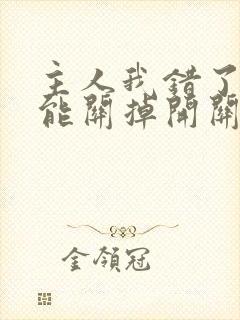 主人我錯了
能關掉開關
金領冠